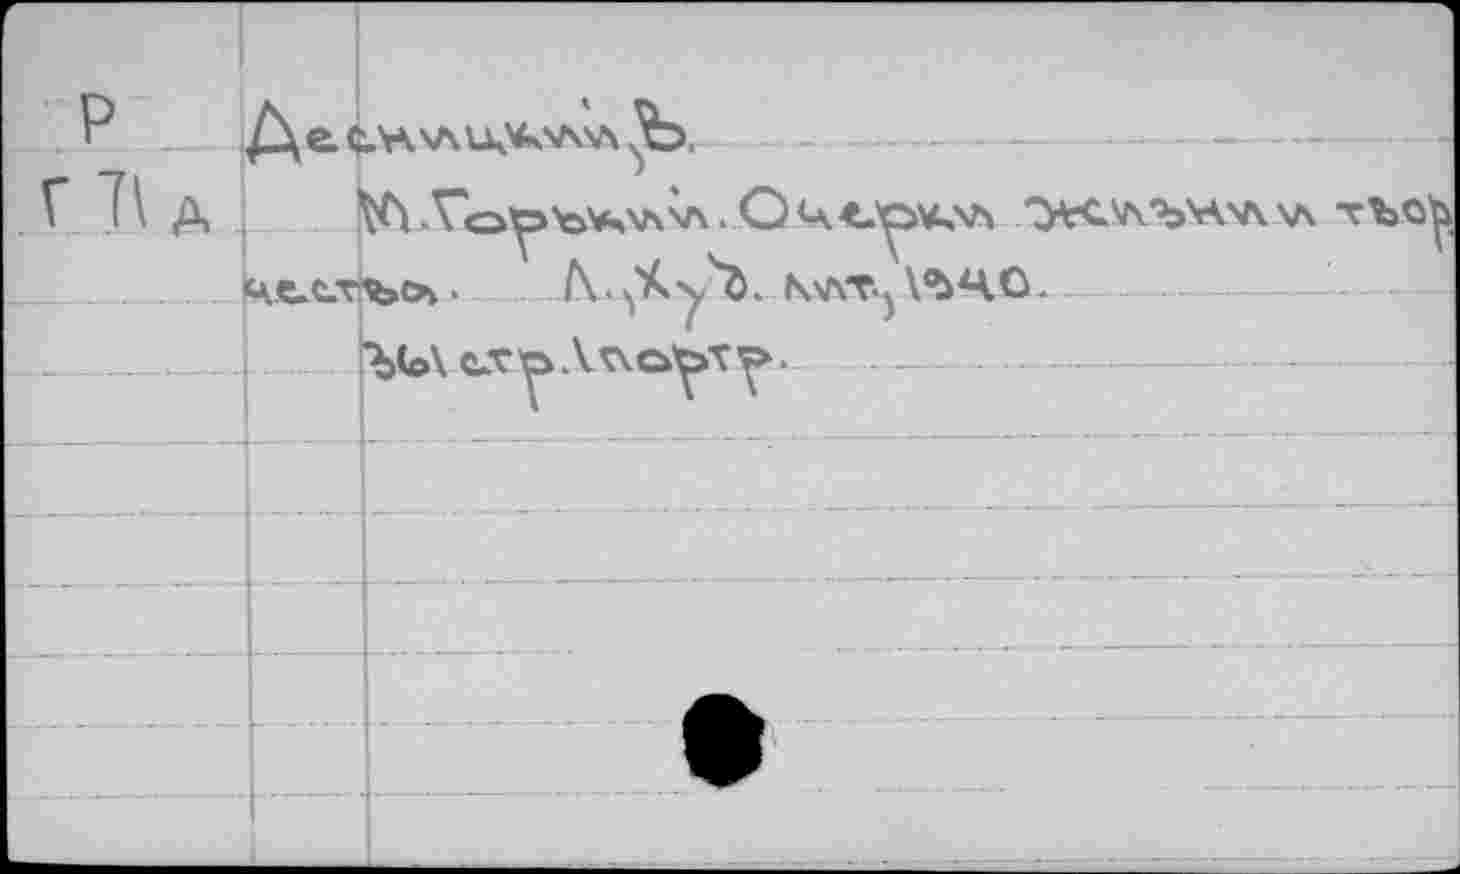 Р
Г 71 д
Десницкий, В.
М. Горький. Очерки жизни и твор
чества. Л., Худ. лит., 1940.
361 стр. 1 портр.